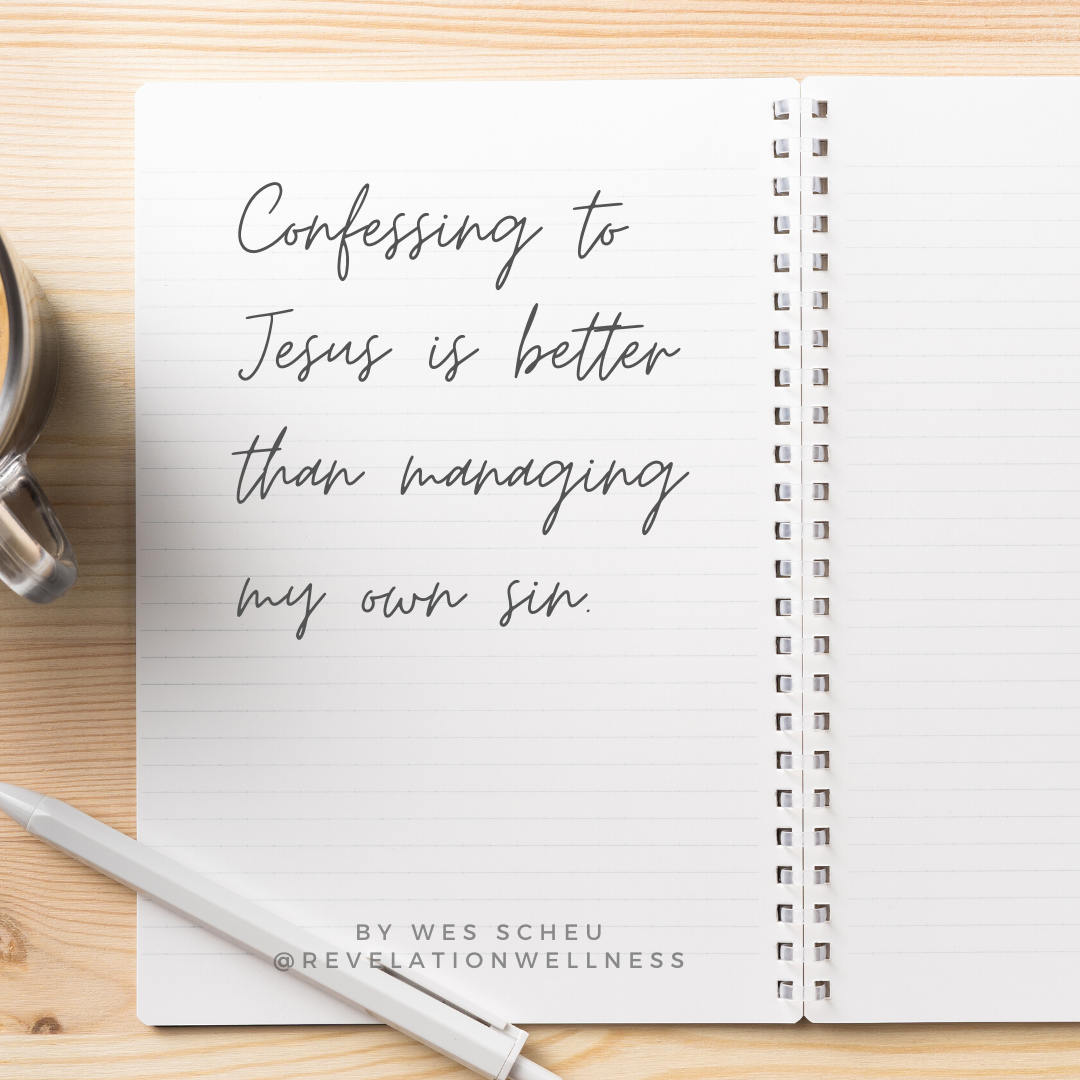 Confessing to
Jesus is better
than managing
my own sin.
BY WES SCHEU
@REVELATIONWELLNESS